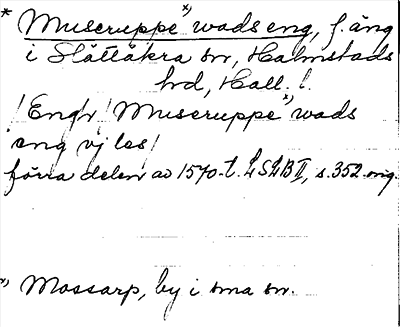 * Museruppe x) wads eng, f. äng
i Slättåkra sn, Halmstads
hd, Hall. l.
! Engh ! Museruppe x) wads
eng vj las !
förra delen av 1570-t. LSLB II, s. 352 orig.
x) Mossarp, by i sma sn.